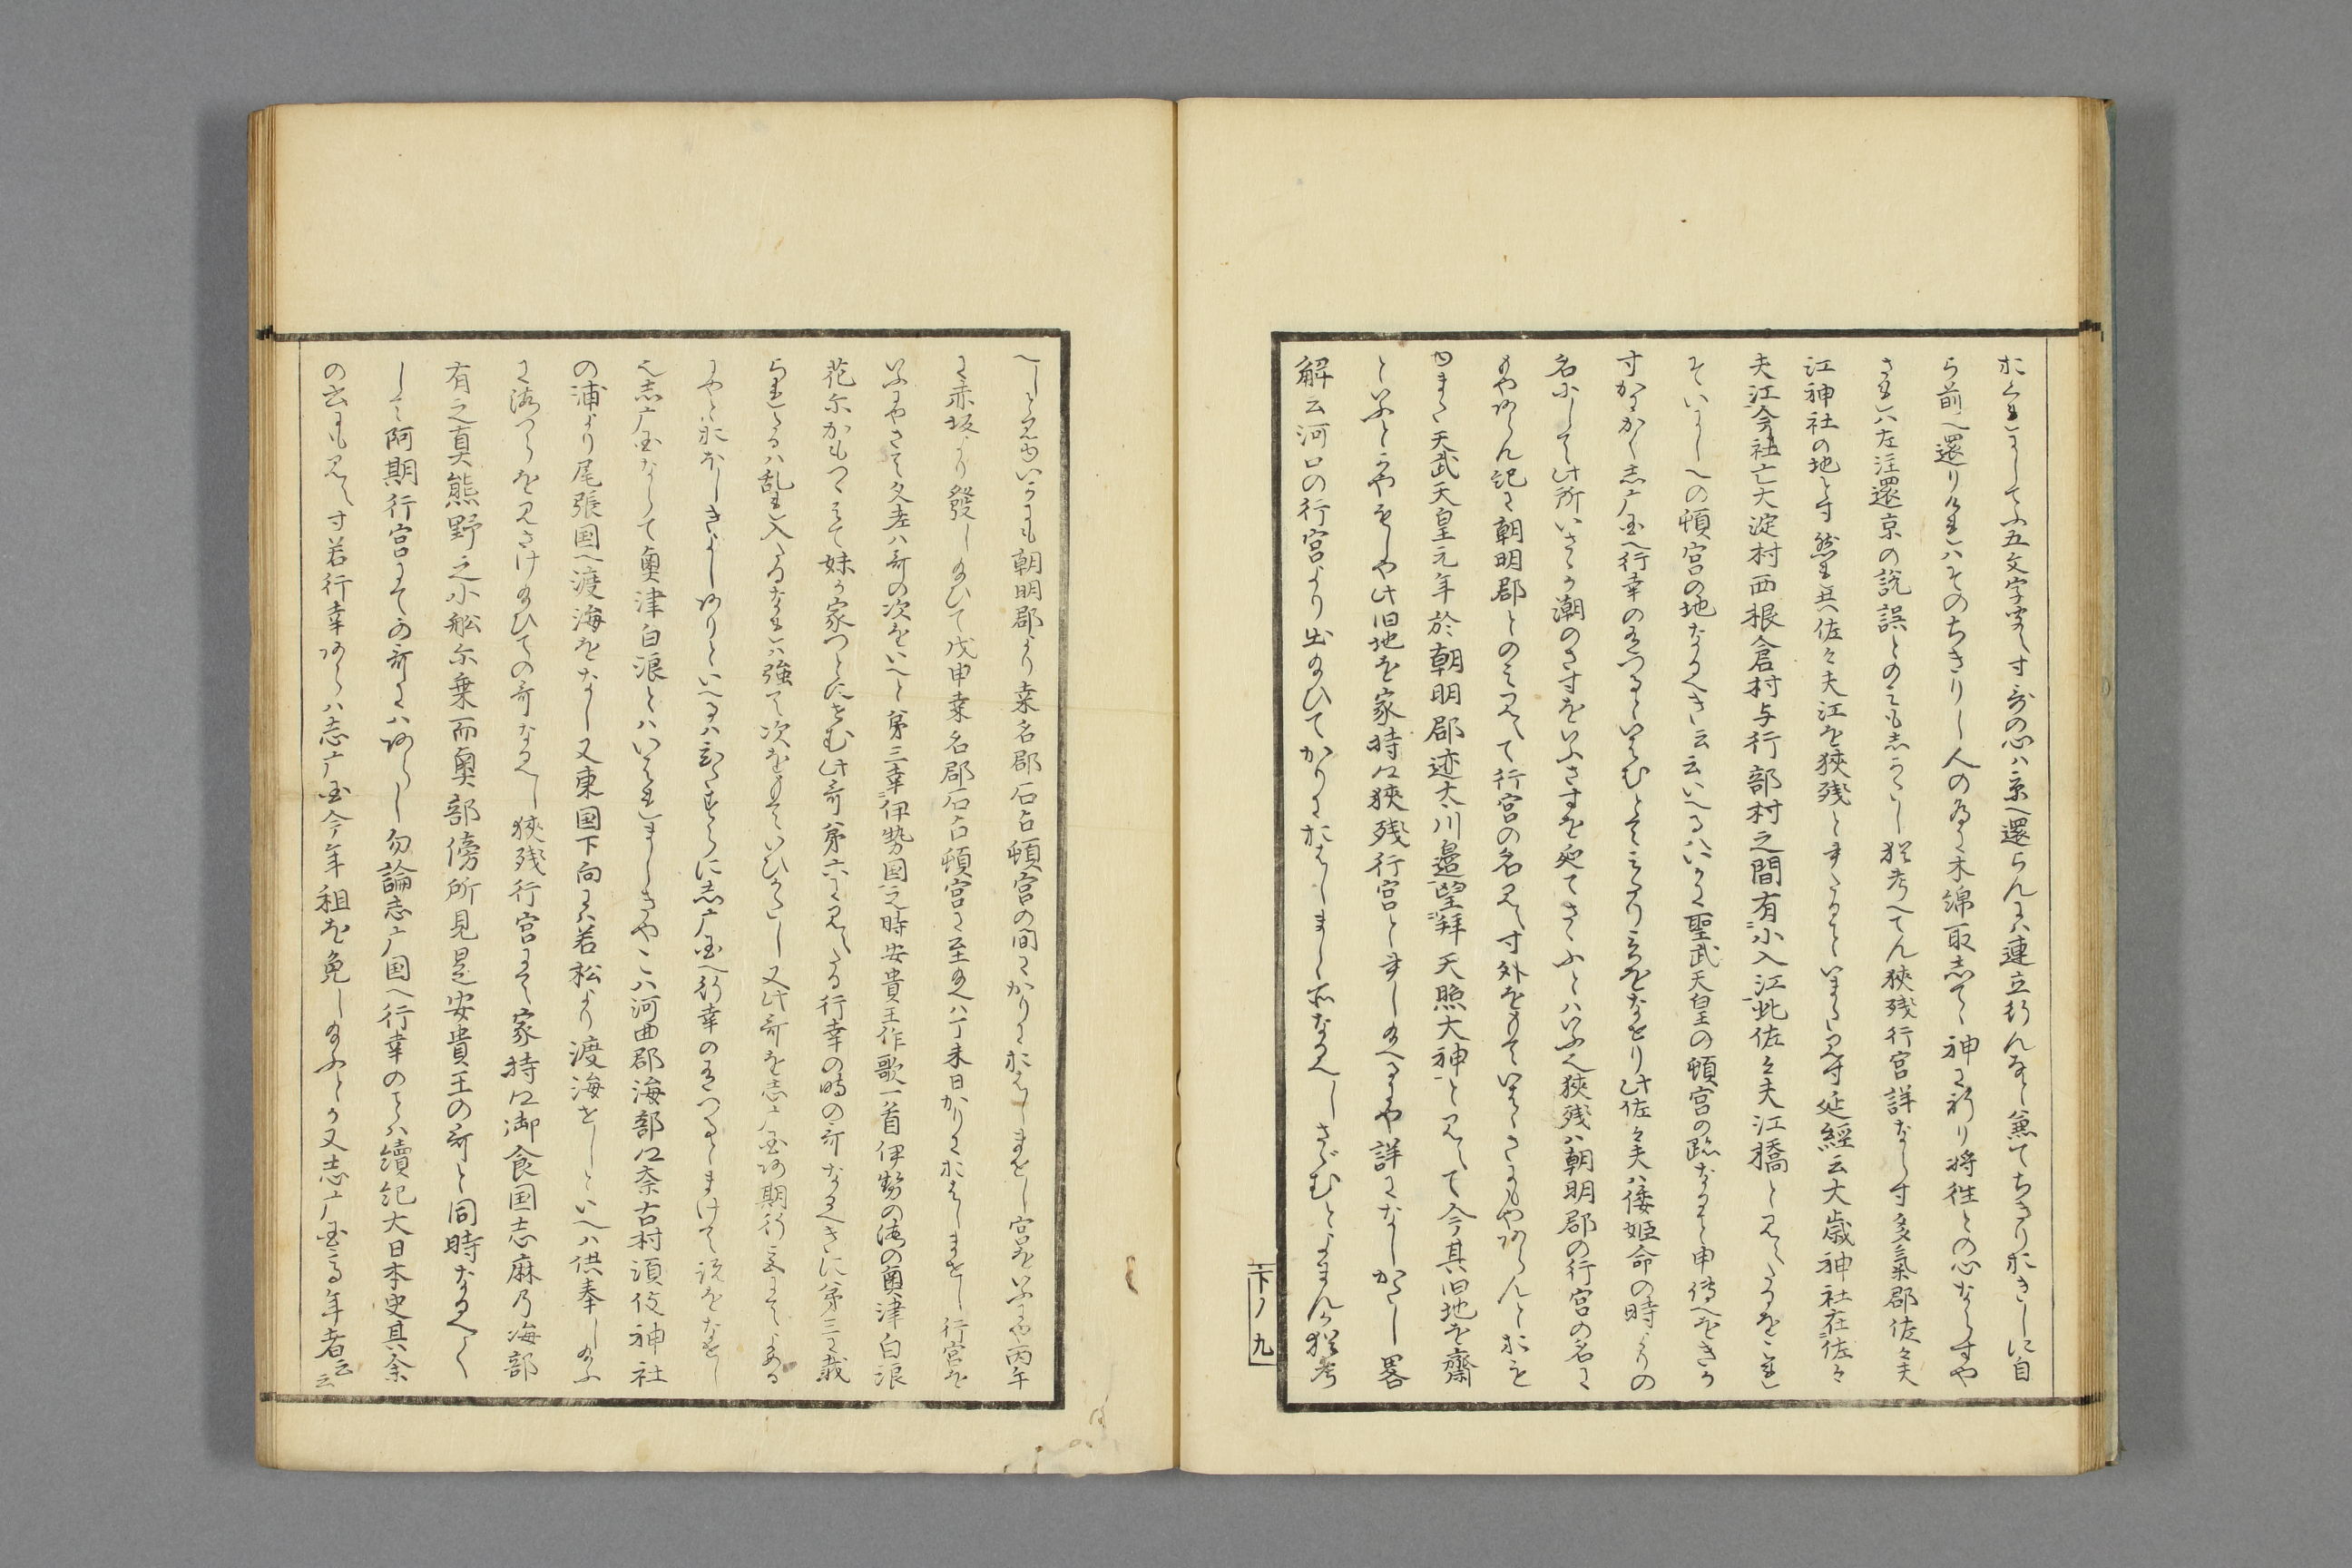 おくれゐてふ五文字穏ならす哥の心ハ京へ還らんにハ連立行んなと兼てちきりおきしに自
ら前へ還り給ハそのちきりし人の為に木綿取志てゝ神に祈り将往との心ならすや
されハ左注還京の説誤とのミも志かたし猶考へてん狭残行宮詳ならす多氣郡佐々夫
江神社の地とす然レ共佐々夫江を狭残とせることいまた見す延經云大歳神社在佐々
夫江今社亡大淀村西根倉村与行部村之間有小入江此佐々夫江橋と見えたるをこれ
そいにしへの頓宮の地なるへき云云いへるハいかに聖武天皇の頓宮の跡なること申傳へをきか
すかにかく志广国へ行幸の有つるといはむとてミたり言をなせり此佐々夫ハ倭姫命の時よりの
名にして此所いさゝか潮のさすをいふさすを延てさゝふとハいふ也狭残ハ朝明郡の行宮の名に
もやあらん記に朝明郡とのミ見えて行宮の名見えす外をもていはゝさもやあらんとおも
ゆまた天武天皇元年於朝明郡迹太川邊望拜天照大神と見えて今其旧地を齋
といふとかやもしや此旧地を家持ハ狭残行宮と申し給へるにや詳になしかたし畧
解云河口の行宮より出給ひてかりにおはしましゝ所なるへしさゞむとよまんか猶考
下ノ九
へしと見ゆいかにも朝明郡より桒名郡石占頓宮の間にかりにおはしませし宮をいふにや丙午
に赤坂より發し給ひて戊申桒名郡石占頓宮に至給へハ丁未日かりにおはしませし行宮を
いふにやさて久老ハ哥の次をいへと第三幸伊勢国之時安貴王作歌一首伊勢の海の奥津白浪
花尓かもつゝミて妹か家つとにせむ此哥第六に見えたる行幸の時の哥なるへきに第三に載
られたるハ乱れ入たるなれハ強て次をもていひかたし又此哥を志广国阿期行宮にてよめる
にやとおほしきよしありといへるハひたすらに志广国へ行幸の有つることまけて説をなせし
也志广国ならて奥津白浪とハいはれましきやこハ河曲郡海部ハ奈古村須伎神社
の浦より尾張国へ渡海をなし又東国下向にハ若松より渡海せしといへハ供奉し給ふ
に海つらを見さけ給ひての哥なるへし狭残行宮にて家持ハ御食国志麻乃海部
有之真熊野之小舩尓乗而奥部傍所見是安貴王の哥と同時なるへく
して阿期行宮にての哥にハあらし勿論志广国へ行幸のことハ續紀大日本史其余
の書にも見えす若行幸あらハ志广国今年租を免し給ふとか又志广国高年者云云